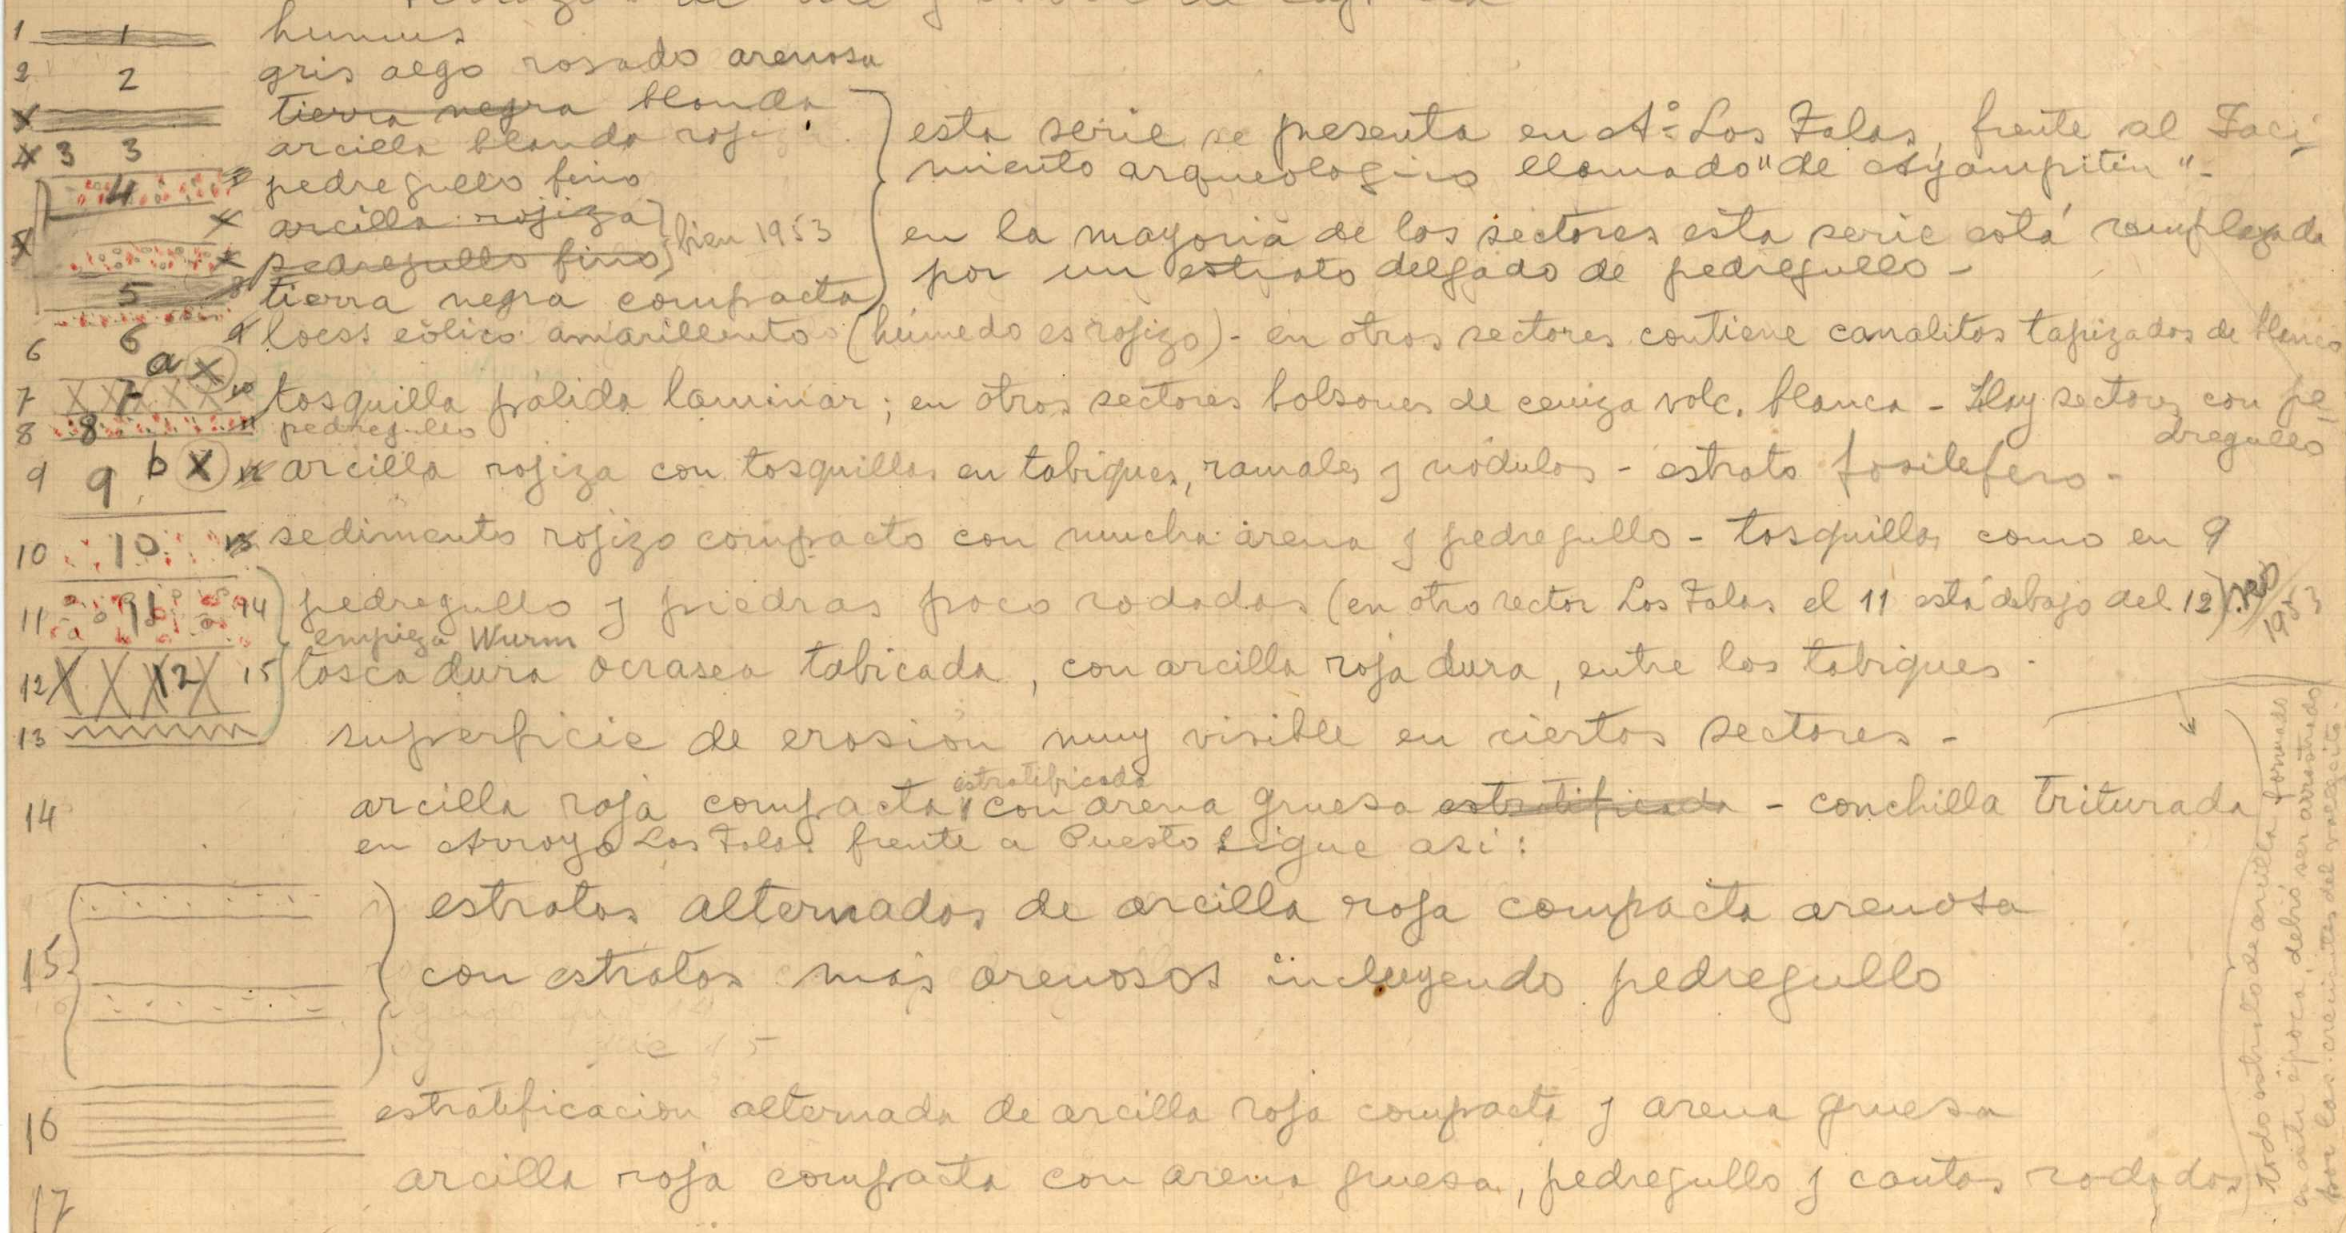 1 1 humus
2 2 gris algo rosado arenosa
x tierra negra blanda
x 3 3 arcilla blanda roj
4 pedregullo fino
x arcilla rojiza
x pedregullo fino bien 1953
5 tierra negra compacta
esta serie se presenta en A° Los Talas, frente al Yaci-
miento arqueologico llamado "de Ayampitin"-
en la mayoria de los sectores esta serie está remplazada
por un estrato delgado de pedregullo-
6 6 loess eólico amarillento (húmedo es rojizo)- en otros sectores contiene canalitos tapizados de blanco
a x
7 7 tosquilla pálida laminar; en otros sectores bolsones de ceniza volc. blanca - Hay sectores con pe
dregullo
8 8 pedregullo
9 9 b x arcilla rojiza con tosquillas en tabiques, ramales y nódulos - estrato fosilefero-
10 10 sedimento rojizo compacto con mucha arena y pedregullo - tosquillas como en 9
11 11 14 pedregullo y piedras poco rodadas (en otro sector Los Talas el 11 está debajo del 12)
1953
empieza Wurm
12 12 15 tosca dura ocrasea tabicada, con arcilla roja dura, entre los tabiques-
13 superficie de erosión muy visible en ciertos sectores-
estratificada
14 arcilla roja compacta con arena gruesa estratificada - conchilla triturada
en Arroyo Los Talas frente a Puesto sigue asi:
15 estratos alternados de arcilla roja compacta arenosa
con estratos más arenosos incluyendo pedregullo
16 estratificación alternada de arcilla roja compacta y arena gruesa
17 arcilla roja compacta con arena gruesa, pedregullo y cantos rodados
todo estrato de arcilla formado
en esta época, debió ser arrastrado
por las crecientes del vallecito-